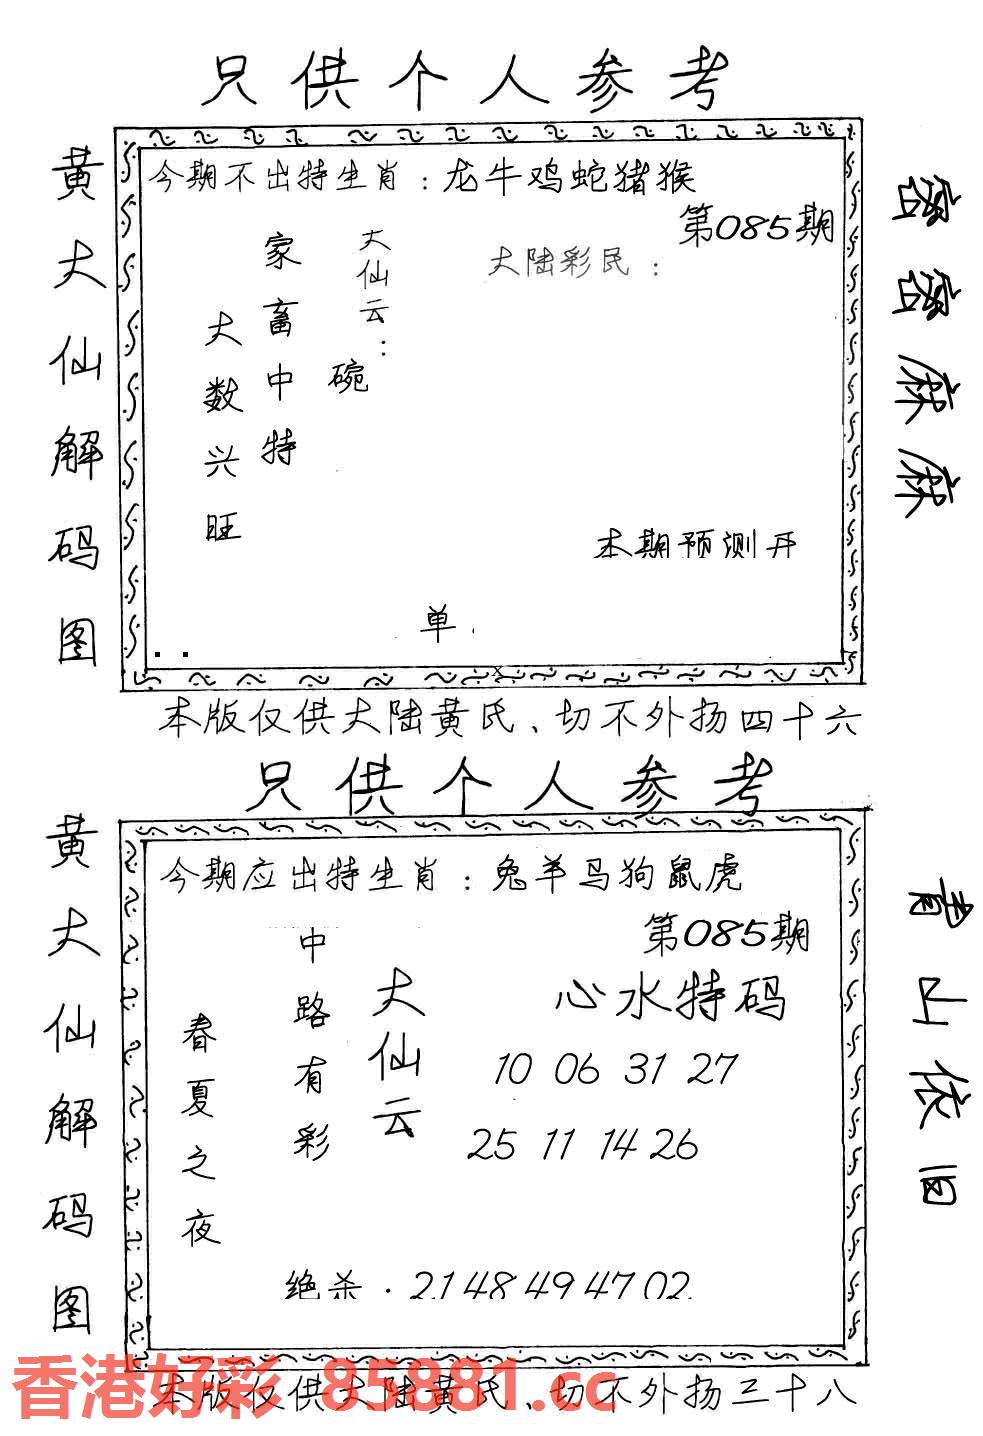 只供个人参考
黄大仙解码图
今期不出特生肖：龙牛鸡蛇猪猴
第085期
大陆彩民：
大仙云：
家畜中特
大数兴旺
碗
本期预测开
单
密密麻麻
本版仅供大陆黄氏、切不外扬四十六
只供个人参考
黄大仙解码图
今期应出特生肖：兔羊马狗鼠虎
第085期
心水特码
大仙云
中路有彩
春夏之夜
10 06 31 27
25 11 14 26
绝杀.2148494702
青山依旧
本版仅供大陆黄氏、切不外扬三十八
香港好彩 85881.cc